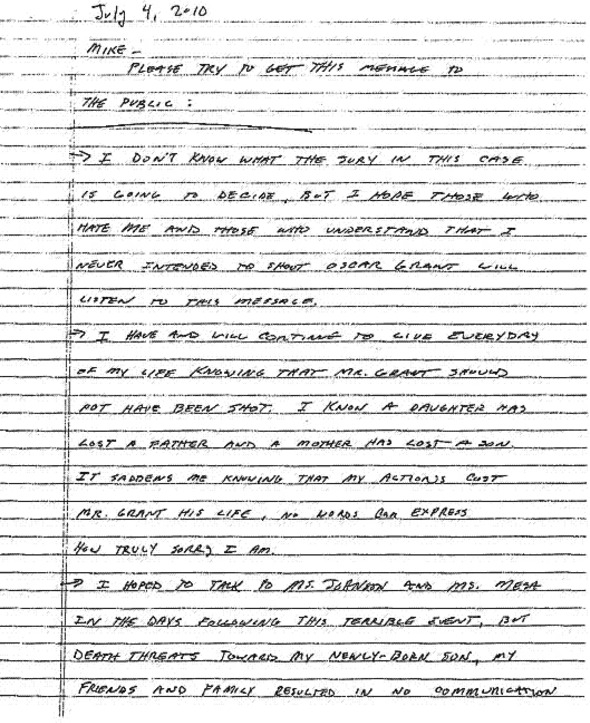 July 4, 2010
MIKE -
PLEASE TRY TO GET THIS MESSAGE TO
THE PUBLIC :
→ I DON'T KNOW WHAT THE JURY IN THIS CASE
IS GOING TO DECIDE, BUT I HOPE THOSE WHO
HATE ME AND THOSE WHO UNDERSTAND THAT I
NEVER INTENDED TO SHOOT OSCAR GRANT WILL
LISTEN TO THIS MESSAGE.
→ I HAVE AND WILL CONTINUE TO LIVE EVERYDAY
OF MY LIFE KNOWING THAT MR. GRANT SHOULD
NOT HAVE BEEN SHOT. I KNOW A DAUGHTER HAS
LOST A FATHER AND A MOTHER HAS LOST A SON.
IT SADDENS ME KNOWING THAT MY ACTIONS COST
MR. GRANT HIS LIFE, NO WORDS CAN EXPRESS
HOW TRULY SORRY I AM.
→ I HOPED TO TALK TO MS. JOHNSON AND MS. MESA
IN THE DAYS FOLLOWING THIS TERRIBLE EVENT, BUT
DEATH THREATS TOWARD MY NEWLY-BORN SON, MY
FRIENDS AND FAMILY RESULTED IN NO COMMUNICATION